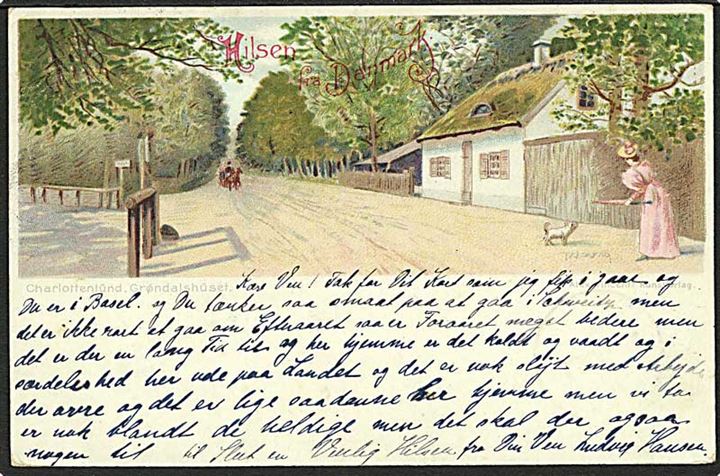 Hilsen
fra Danmark
Charlottenlund. Grøndalshuset.
Kære Ven! Tak for Dit Kort som jeg fik i gaar og
Du er i Basel. og Du tænker saa smaat paa at gaa i Schweitz men
det er ikke rart at gaa om Efteraaret saa er Foraaret meget bedere men
det er der en lang Tid til og her hjemme er det koldt og vaadt og i
særdeleshed her ude paa Landet og det er nok sløjt med Arbejde
der ovre og det er lige saadanne her hjemme men vi to
er nok blandt de heldige men det skal der ogsaa
nogen til til Slut en Venlig Hilsen fra Din Ven Ludvig Hansen